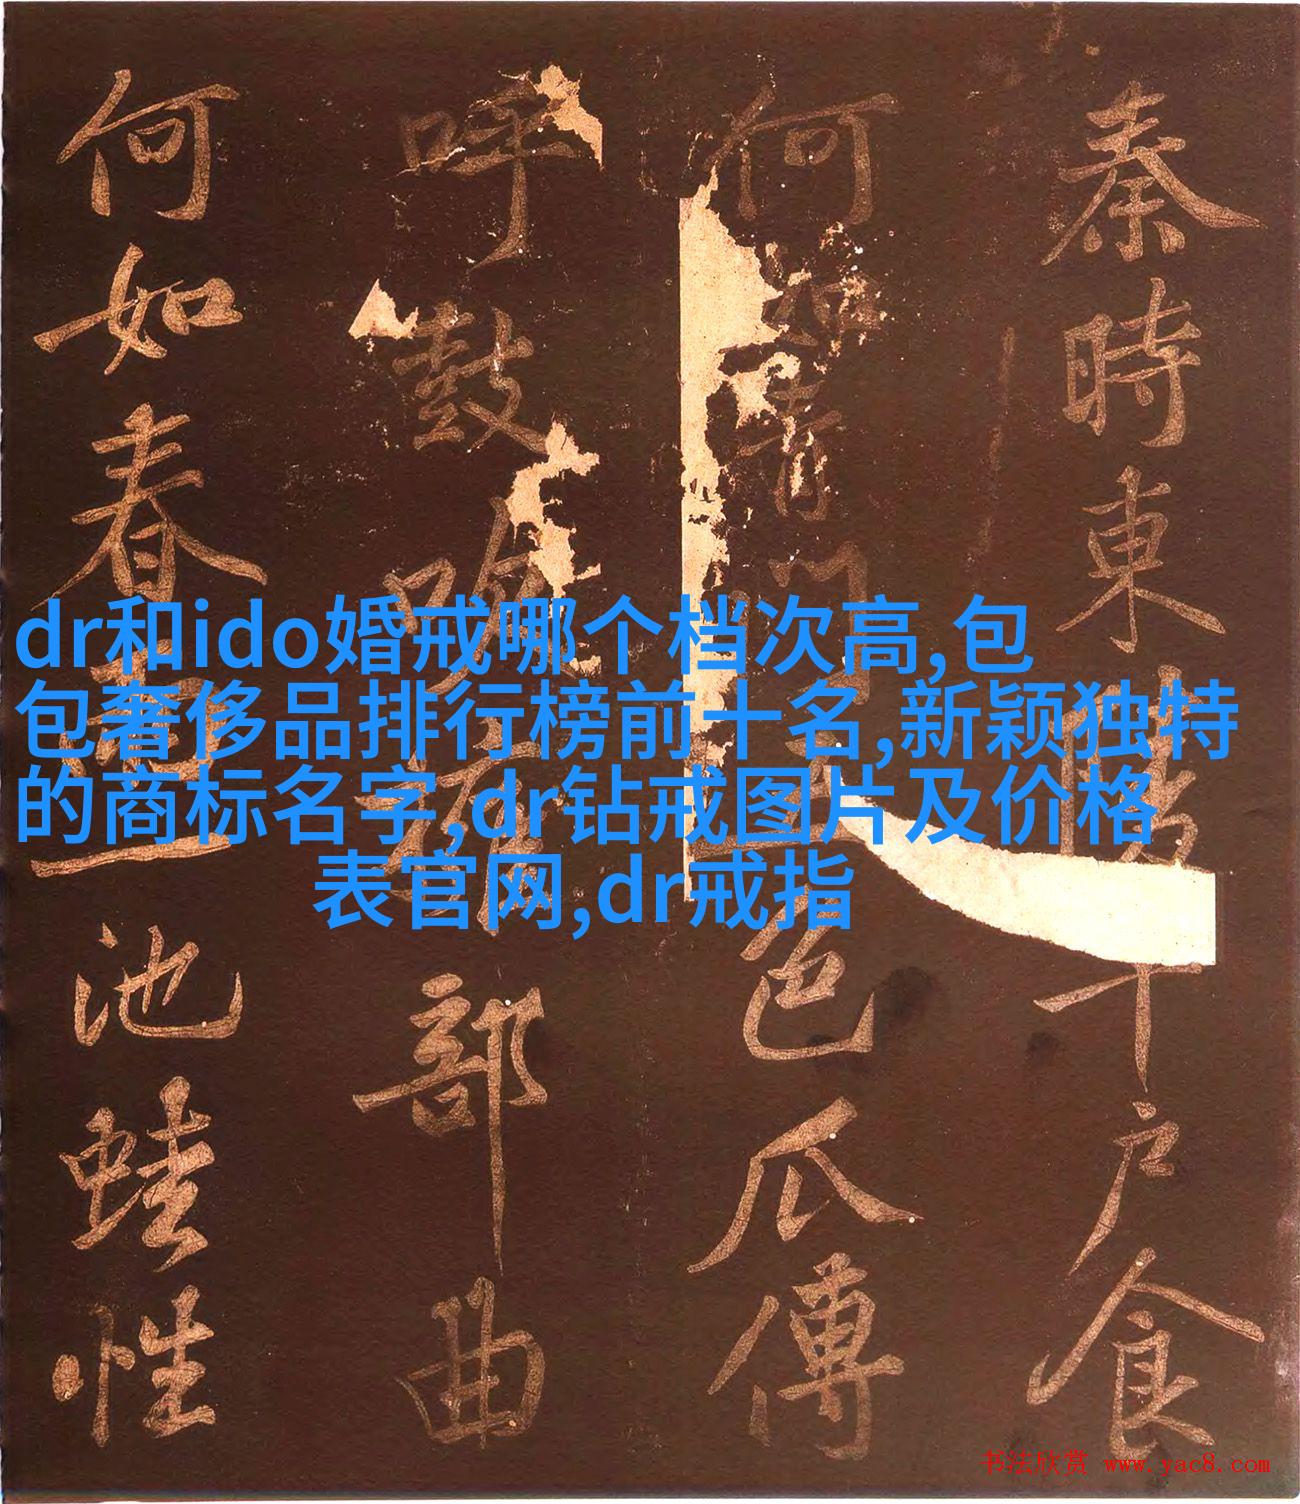 秦時東陵千戶食
何如青門五色瓜傳
呼鼓吹部曲
何如春池蛙性
dr和ido婚戒哪个档次高,包
包奢侈品排行榜前十名,新颖独特
的商标名字,dr钻戒图片及价格
表官网,dr戒指
书法欣赏 www.yac8.com